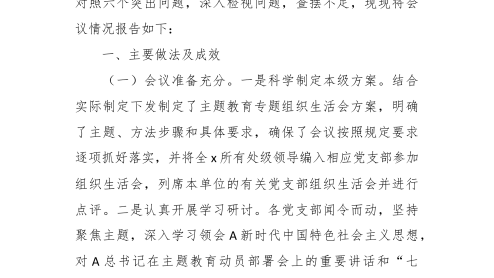 对照六个突出问题，深入检视问题，查摆不足，现现将会
议情况报告如下：
一、主要做法及成效
（一）会议准备充分。一是科学制定本级方案。结合
实际制定下发制定了主题教育专题组织生活会方案，明确
了主题、方法步骤和具体要求，确保了会议按照规定要求
逐项抓好落实，并将全x所有处级领导编入相应党支部参加
组织生活会，列席本单位的有关党支部组织生活会并进行
点评。二是认真开展学习研讨。各党支部闻令而动，坚持
聚焦主题，深入学习领会A新时代中国特色社会主义思想，
对A总书记在主题教育动员部署会上的重要讲话和“七